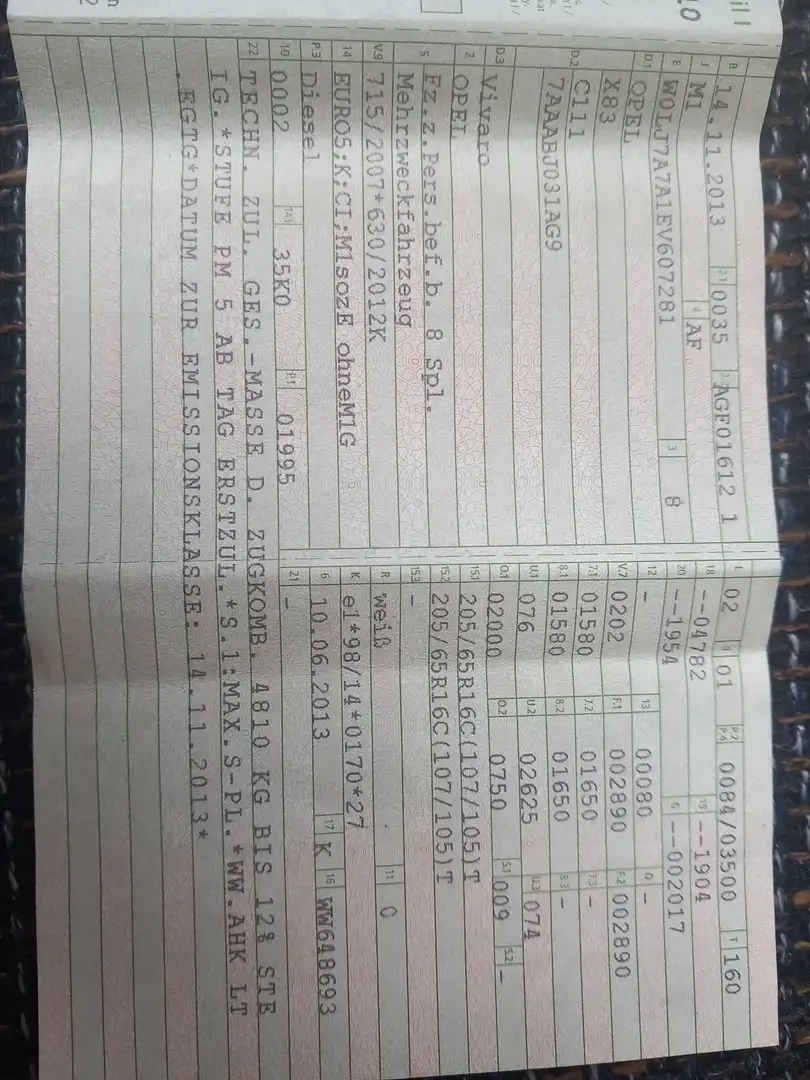 B 14.11.2013 2.1 0035 AGF01612 1
L 02 9 01 P.2 P.4 0084/03500 T 160
J M1 4 AF
18 --04782 19 --1904
E W0LJ7A7A1EV607281 3 8
20 --1954 G --002017
D.1 OPEL
12 - 13 00080 Q -
X83
V.7 0202 F.1 002890 F.2 002890
D.2 C111
7.1 01580 7.2 01650 7.3 -
7AAABJ031AG9
8.1 01580 8.2 01650 8.3 -
U.1 076 U.2 02625 U.3 074
D.3 Vivaro
O.1 02000 O.2 0750 S.1 009 S.2 -
2 OPEL
15.1 205/65R16C(107/105)T
5 Fz.z.Pers.bef.b. 8 Spl.
15.2 205/65R16C(107/105)T
Mehrzweckfahrzeug
15.3 -
V.9 715/2007*630/2012K
R weiß 11 0
14 EURO5;K;CI;M1sozE ohneM1G
K e1*98/14*0170*27
P.3 Diesel
6 10.06.2013 17 K 16 WW648693
10 0002 14.1 35K0 P.1 01995
21 -
22 TECHN. ZUL. GES.-MASSE D. ZUGKOMB. 4810 KG BIS 12% STE
IG.*STUFE PM 5 AB TAG ERSTZUL.*S.1:MAX.S-PL.*WW.AHK LT
.EGTG*DATUM ZUR EMISSIONSKLASSE: 14.11.2013*